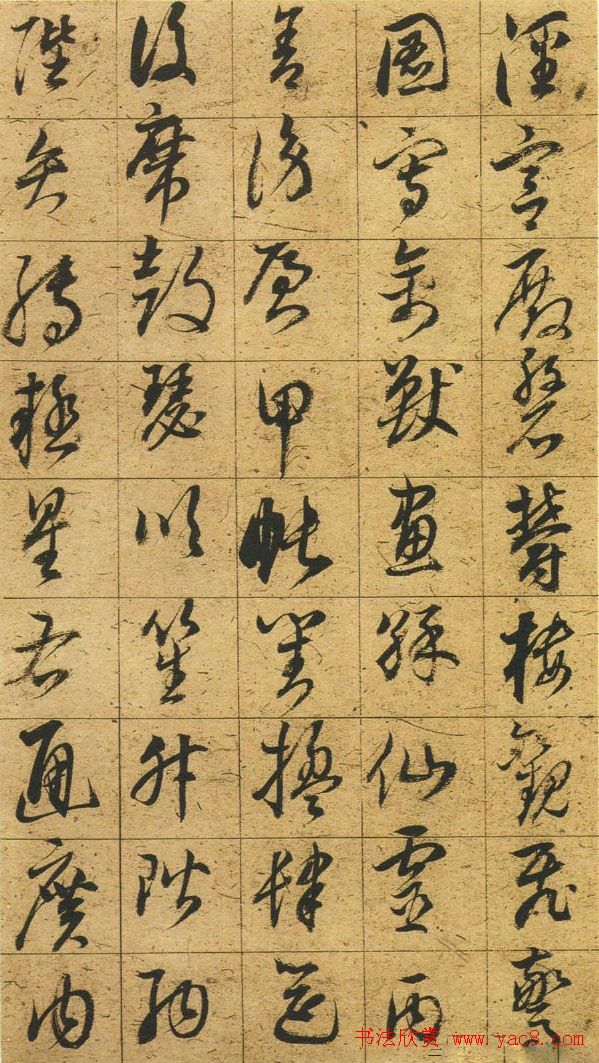 涇宮殿磐鬱樓觀飛驚
圖寫禽獸畫綵仙靈丙
舍傍啓甲帳對楹肆筵
設席鼓瑟吹笙升階納
陛弁轉疑星右通廣內
书法欣赏 www.yac8.com